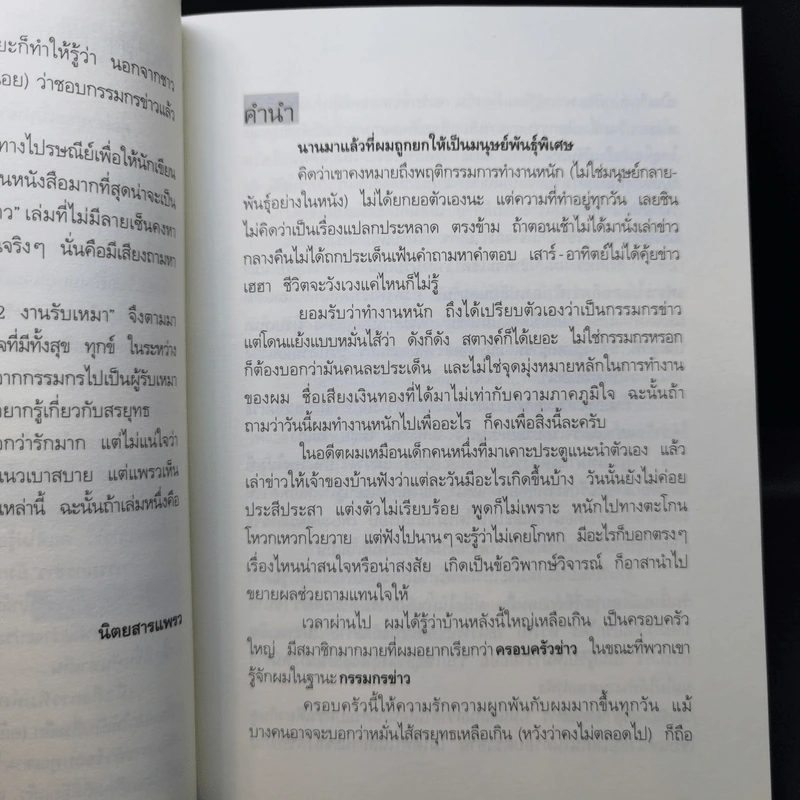 ยะก็ทำให้รู้ว่า นอกจากชาว
อย) ว่าชอบกรรมกรข่าวแล้ว
ทางไปรษณีย์เพื่อให้นักเขียน
นหนังสือมากที่สุดน่าจะเป็น
าว” เล่มที่ไม่มีลายเซ็นคงหา
นจริงๆ นั่นคือมีเสียงถามหา
2 งานรับเหมา” จึงตามมา
จที่มีทั้งสุข ทุกข์ ในระหว่าง
จากกรรมกรไปเป็นผู้รับเหมา
อยากรู้เกี่ยวกับสรยุทธ
อกว่ารักมาก แต่ไม่แน่ใจว่า
แนวเบาสบาย แต่แพรวเห็น
เหล่านี้ ฉะนั้นถ้าเล่มหนึ่งคือ
นิตยสารแพรว
คำนำ
นานมาแล้วที่ผมถูกยกให้เป็นมนุษย์พันธุ์พิเศษ
คิดว่าเขาคงหมายถึงพฤติกรรมการทำงานหนัก (ไม่ใช่มนุษย์กลาย-
พันธุ์อย่างในหนัง) ไม่ได้ยกยอตัวเองนะ แต่ความที่ทำอยู่ทุกวัน เลยชิน
ไม่คิดว่าเป็นเรื่องแปลกประหลาด ตรงข้าม ถ้าตอนเช้าไม่ได้มานั่งเล่าข่าว
กลางคืนไม่ได้ถกประเด็นเฟ้นคำถามหาคำตอบ เสาร์-อาทิตย์ไม่ได้คุ้ยข่าว
เฮฮา ชีวิตจะวังเวงแค่ไหนก็ไม่รู้
ยอมรับว่าทำงานหนัก ถึงได้เปรียบตัวเองว่าเป็นกรรมกรข่าว
แต่โดนแย้งแบบหมั่นไส้ว่า ดังก็ดัง สตางค์ก็ได้เยอะ ไม่ใช่กรรมกรหรอก
ก็ต้องบอกว่ามันคนละประเด็น และไม่ใช่จุดมุ่งหมายหลักในการทำงาน
ของผม ชื่อเสียงเงินทองที่ได้มาไม่เท่ากับความภาคภูมิใจ ฉะนั้นถ้า
ถามว่าวันนี้ผมทำงานหนักไปเพื่ออะไร ก็คงเพื่อสิ่งนี้ละครับ
ในอดีตผมเหมือนเด็กคนหนึ่งที่มาเคาะประตูแนะนำตัวเอง แล้ว
เล่าข่าวให้เจ้าของบ้านฟังว่าแต่ละวันมีอะไรเกิดขึ้นบ้าง วันนั้นยังไม่ค่อย
ประสีประสา แต่งตัวไม่เรียบร้อย พูดก็ไม่เพราะ หนักไปทางตะโกน
โหวกเหวกโวยวาย แต่ฟังไปนานๆจะรู้ว่าไม่เคยโกหก มีอะไรก็บอกตรงๆ
เรื่องไหนน่าสนใจหรือน่าสงสัย เกิดเป็นข้อวิพากษ์วิจารณ์ ก็อาสานำไป
ขยายผลช่วยถามแทนใจให้
เวลาผ่านไป ผมได้รู้ว่าบ้านหลังนี้ใหญ่เหลือเกิน เป็นครอบครัว
ใหญ่ มีสมาชิกมากมายที่ผมอยากเรียกว่าครอบครัวข่าว ในขณะที่พวกเขา
รู้จักผมในฐานะกรรมกรข่าว
ครอบครัวนี้ให้ความรักความผูกพันกับผมมากขึ้นทุกวัน แม้
บางคนอาจจะบอกว่าหมั่นไส้สรยุทธเหลือเกิน (หวังว่าคงไม่ตลอดไป) ก็ถือ